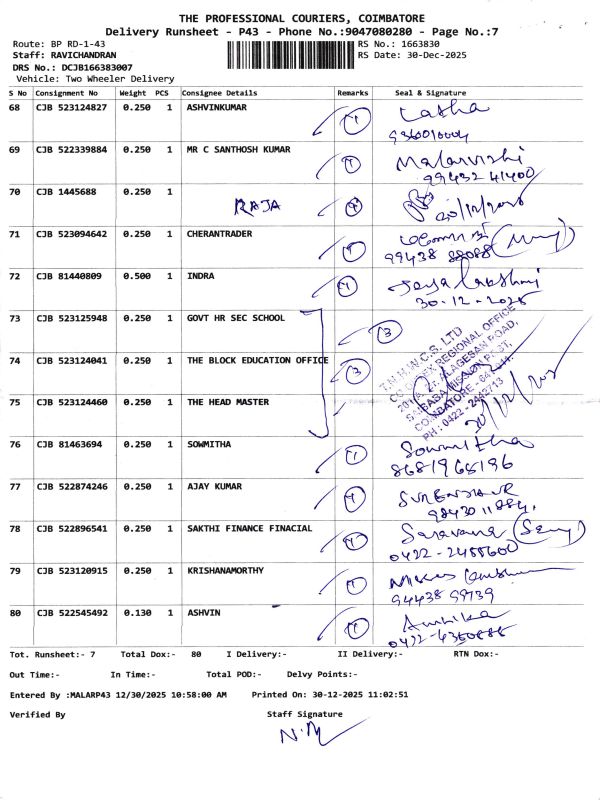 THE PROFESSIONAL COURIERS, COIMBATORE
Delivery Runsheet - P43 - Phone No.:9047080280 - Page No.:7
Route: BP RD-1-43 RS No.: 1663830
Staff: RAVICHANDRAN RS Date: 30-Dec-2025
DRS No.: DCJB166383007
Vehicle: Two Wheeler Delivery
S No Consignment No Weight PCS Consignee Details Remarks Seal & Signature
68 CJB 523124827 0.250 1 ASHVINKUMAR 1 Latha
9360010004
69 CJB 522339884 0.250 1 MR C SANTHOSH KUMAR 1 Malarvizhi
99432 41400
70 CJB 1445688 0.250 1 RAJA 30/12/2025
71 CJB 523094642 0.250 1 CHERANTRADER 1
99438 88088
72 CJB 81440809 0.500 1 INDRA 1 Jeya Lakshmi
30-12-2025
73 CJB 523125948 0.250 1 GOVT HR SEC SCHOOL 3
74 CJB 523124041 0.250 1 THE BLOCK EDUCATION OFFICE 3
75 CJB 523124460 0.250 1 THE HEAD MASTER
T.N.H.W.C.S. LTD
REGIONAL OFFICE
ALAGESAN ROAD,
SAIBABA MISSION POST,
COIMBATORE - 641 011.
PH : 0422 - 2445713
76 CJB 81463694 0.250 1 SOWMITHA 1 Sowmitha
8681965196
77 CJB 522874246 0.250 1 AJAY KUMAR 1
78 CJB 522896541 0.250 1 SAKTHI FINANCE FINACIAL 1 Saravana
0422-2455600
79 CJB 523120915 0.250 1 KRISHANAMORTHY 1
94438 99739
80 CJB 522545492 0.130 1 ASHVIN 1 Ambika
Tot. Runsheet:- 7 Total Dox:- 80 I Delivery:- II Delivery:- RTN Dox:-
Out Time:- In Time:- Total POD:- Delvy Points:-
Entered By :MALARP43 12/30/2025 10:58:00 AM Printed On: 30-12-2025 11:02:51
Verified By Staff Signature